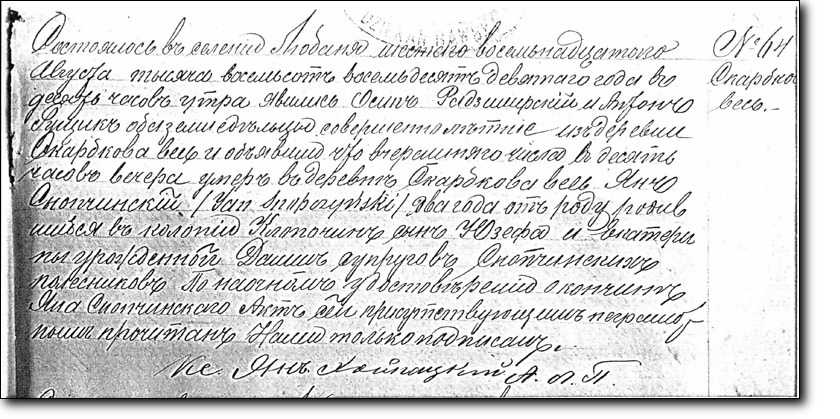 Состоялось въ селеніи Любаня шестаго восемьнадцатаго
Августа тысяча восемьсотъ восемьдесятъ девятаго года въ
десять часовъ утра явились Осипъ и Антонъ
оба земледѣльцы совершеннолѣтніе изъ деревни
Скарбкова весь и объявили что вчерашняго числа въ десять
часовъ вечера умеръ въ деревнѣ Скарбкова весь Янъ
Снопчинскій /Jan Snopczyński/ два года отъ роду родив
шійся въ колоніи Клопочинъ сынъ Юзефа и Екатери
ны урожденной супруговъ Снопчинскихъ
По наочномъ удостовѣреніи о кончинѣ
Яна Снопчинскаго Актъ сей присутствующимъ неграмот
нымъ прочитанъ Нами только подписанъ.
Кс. Янъ А. П.
№ 64
Скарбкова
весь.-